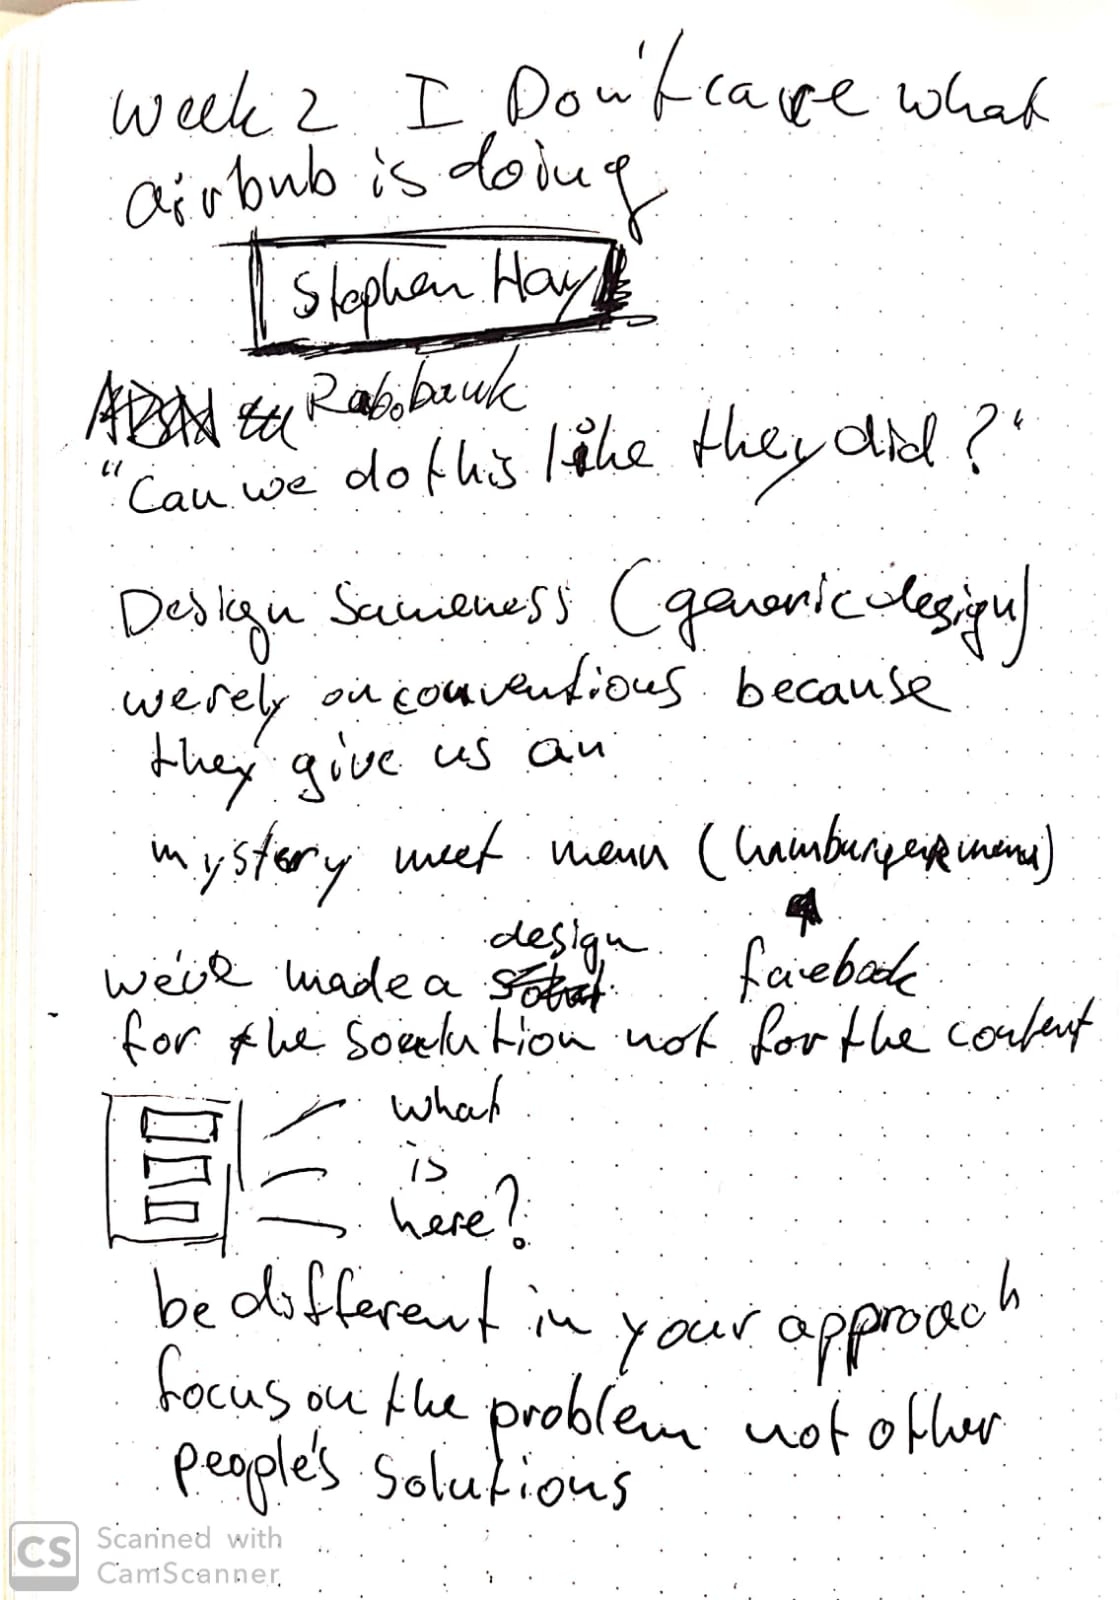 Week 2 I Don't care what
airbnb is doing
Stephen Hay
Rabobank
"Can we do this like they did?"
Design Sameness (generic design)
we rely on conventions because
they give us an
mystery meet menu (hamburger menu)
design
we've made a facebook
for the soeulution not for the content
what
is
here?
be different in your approach
focus on the problem not other
people's solutions
CS Scanned with
CamScanner